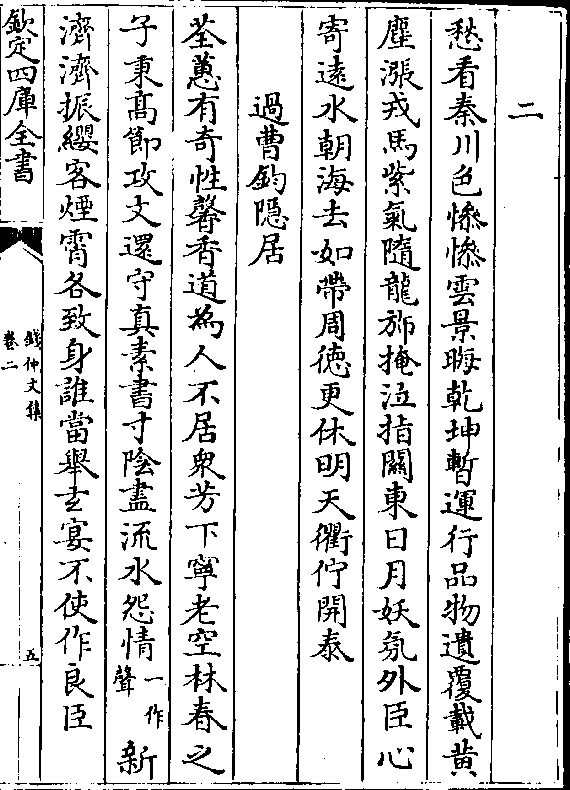 二
愁看秦川色惨惨雲景晦乾坤暫運行品物遺覆載黄
塵漲戎馬紫氣隨龍旆掩泣指關東日月妖氛外臣心
寄逺水朝海去如帶周徳更休明天衢佇開泰
過曹鈞隠居
荃蕙有奇性馨香道為人不居衆芳下寧老空林春之
子秉髙節攻文還守真素書寸陰盡流水怨情一作聲新
濟濟振纓客煙霄各致身誰當舉玄宴不使作良臣
欽定四庫全書
錢仲文集
卷二
五